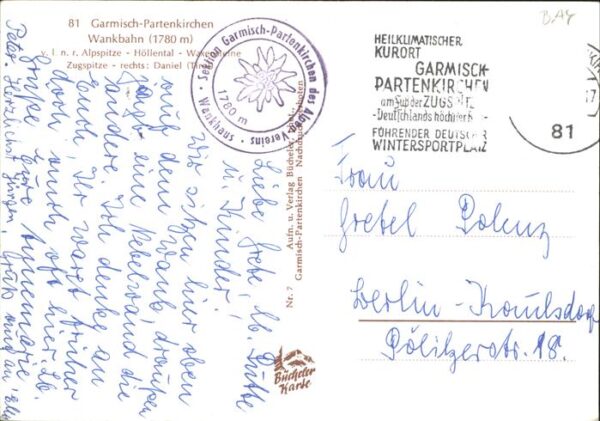 81 Garmisch-Partenkirchen
Wankbahn (1780 m)
v. l. n. r. Alpspitze - Höllental - Waxensteine
Zugspitze - rechts: Daniel (Tirol)
Sektion Garmisch-Partenkirchen des Alpen-Vereins
Wankhaus
1780 m
HEILKLIMATISCHER
KURORT
GARMISCH-
PARTENKIRCHEN
am Fuß der ZUGSPITZE
-Deutschlands höchster
FÜHRENDER DEUTSCHER
WINTERSPORTPLATZ
81
Liebe Grete, lb. Dütte
u. Kinder!
Wir sitzen hier oben
auf dem Wank, draußen
ganz eine Nebelwand die
andere. Ich denke an
Euch, Ihr wart früher
doch auch oft hier. Lb.
Grüße Eure Annemarie
Peter. Herzlichst Jürgen, Gruß auch an alle
Nr. 7 Aufn. u. Verlag Bücheler
Garmisch-Partenkirchen Nachdruck verboten
Bücheler
Karte
Frau
Gretel Polenz
Berlin-Kaulsdorf
Pölitzerstr. 18.